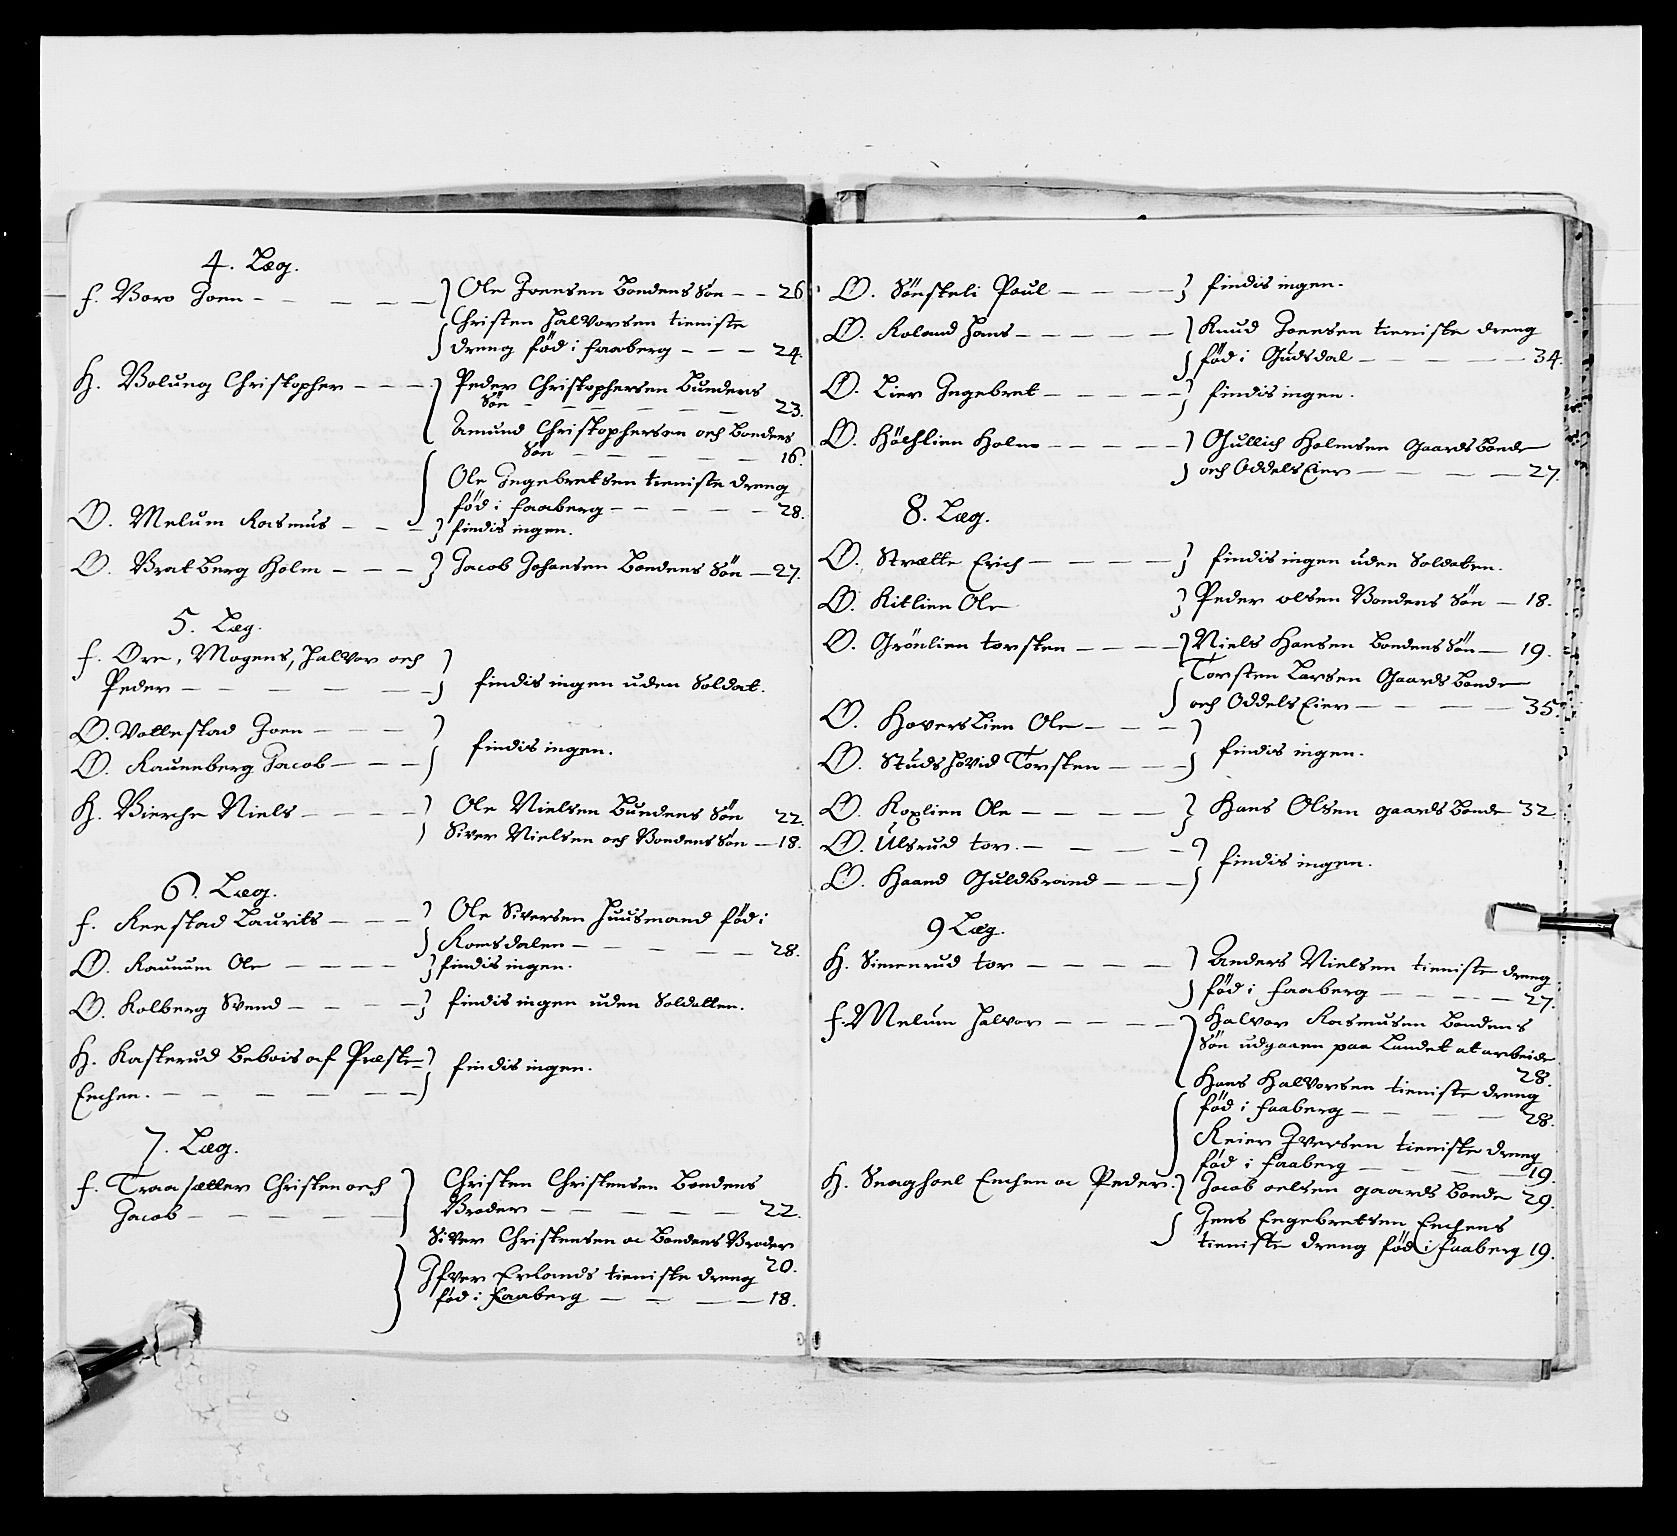 4. Læg.
f. Boro Joen — — — — —
Ole Joensen Bondens Søn — — 26
Christen Halvorsen tieniste
dreng fød i Faaberg — — — 24.
H. Bolung Christopher — — —
Peder Christophersen Bundens
Søn — — — — — 23.
Amund Christophersen och Bondens
Søn — — — — — 16.
Ole Ingebretsen tieniste dreng
fød i Faaberg — — — — — 28.
Ø. Melum Rasmus — — —
findis ingen.
Ø. Bratberg Holm — — —
Jacob Johansen Bondens Søn — 27.
5. Læg.
f. Øre, Mogens, Halvor och
Peder — — — — — —
findis ingen uden Soldat.
Ø. Vollestad Joen — — —
Ø. Rauneberg Jacob — — —
findis ingen.
H. Bierche Niels — — — —
Ole Nielsen Bundens Søn 22.
Siver Nielsen och Bondens Søn — 18.
6. Læg.
f. Reestad Laurits — — —
Ole Siversen Huusmand fød i
Romsdalen — — — — — 28.
Ø. Raunum Ole — — — —
findis ingen.
Ø. Kolberg Svend — — — —
findis ingen uden Soldatten.
H. Kasterud bebois af Præste-
Enchen. — — — — — —
findis ingen.
7. Læg.
f. Traasætter Christen och
Jacob — — — — — —
Christen Christensen Bondens
Broder — — — — — 22.
Siver Christensen oc Bondens Broder
20.
Ifver Erlands tieniste dreng
fød i Faaberg — — — — 18.
Ø. Sønsteli Poul — — — —
findis ingen.
Ø. Roland Hans — — — — —
Knud Joensen tieniste dreng
fød i Gudsdal — — — — — 34.
Ø. Lier Ingebret — — — — —
findis ingen.
Ø. Høchlien Holm — — — — —
Gullich Holmsen Gaards Bonde
och Oddels Eier — — — — — 27.
8. Læg.
Ø. Strætte Erich — — — — —
findis ingen uden Soldaten.
Ø. Kitlien Ole
Peder olsen Bondens Søn — 18.
Ø. Grønlien torsten — — — —
Niels Hansen Bondens Søn — 19.
Torsten Larsen Gaards Bonde
och Oddels Eier — — — — 35.
Ø. Hovers Lien Ole — — — —
Ø. Studshovid Torsten — — —
findis ingen.
Ø. Roxlien Ole — — — — —
Hans Olsen gaards Bonde 32
Ø. Ulsrud tor. — — — —
Ø. Haand Guldbrand — — —
findis ingen.
9 Læg.
H. Simenrud tor — — — —
Anders Nielsen tieniste dreng
fød i Faaberg — — — — — 27.
f. Melum Halvor — — — —
Halvor Rasmusen Bondens
Søn udgaaen paa Landet at arbeide
28.
Hans Halvorsen tieniste dreng
fød i Faaberg — — — — 28.
Reier Iversen tieniste dreng
fød i Faaberg — — — — — 19.
H. Snaghoel Enchen oc Peder.
Jacob oelsen gaards Bonde 29.
Jens Engebretsen Enchens
tieniste dreng fød i Faaberg 19.